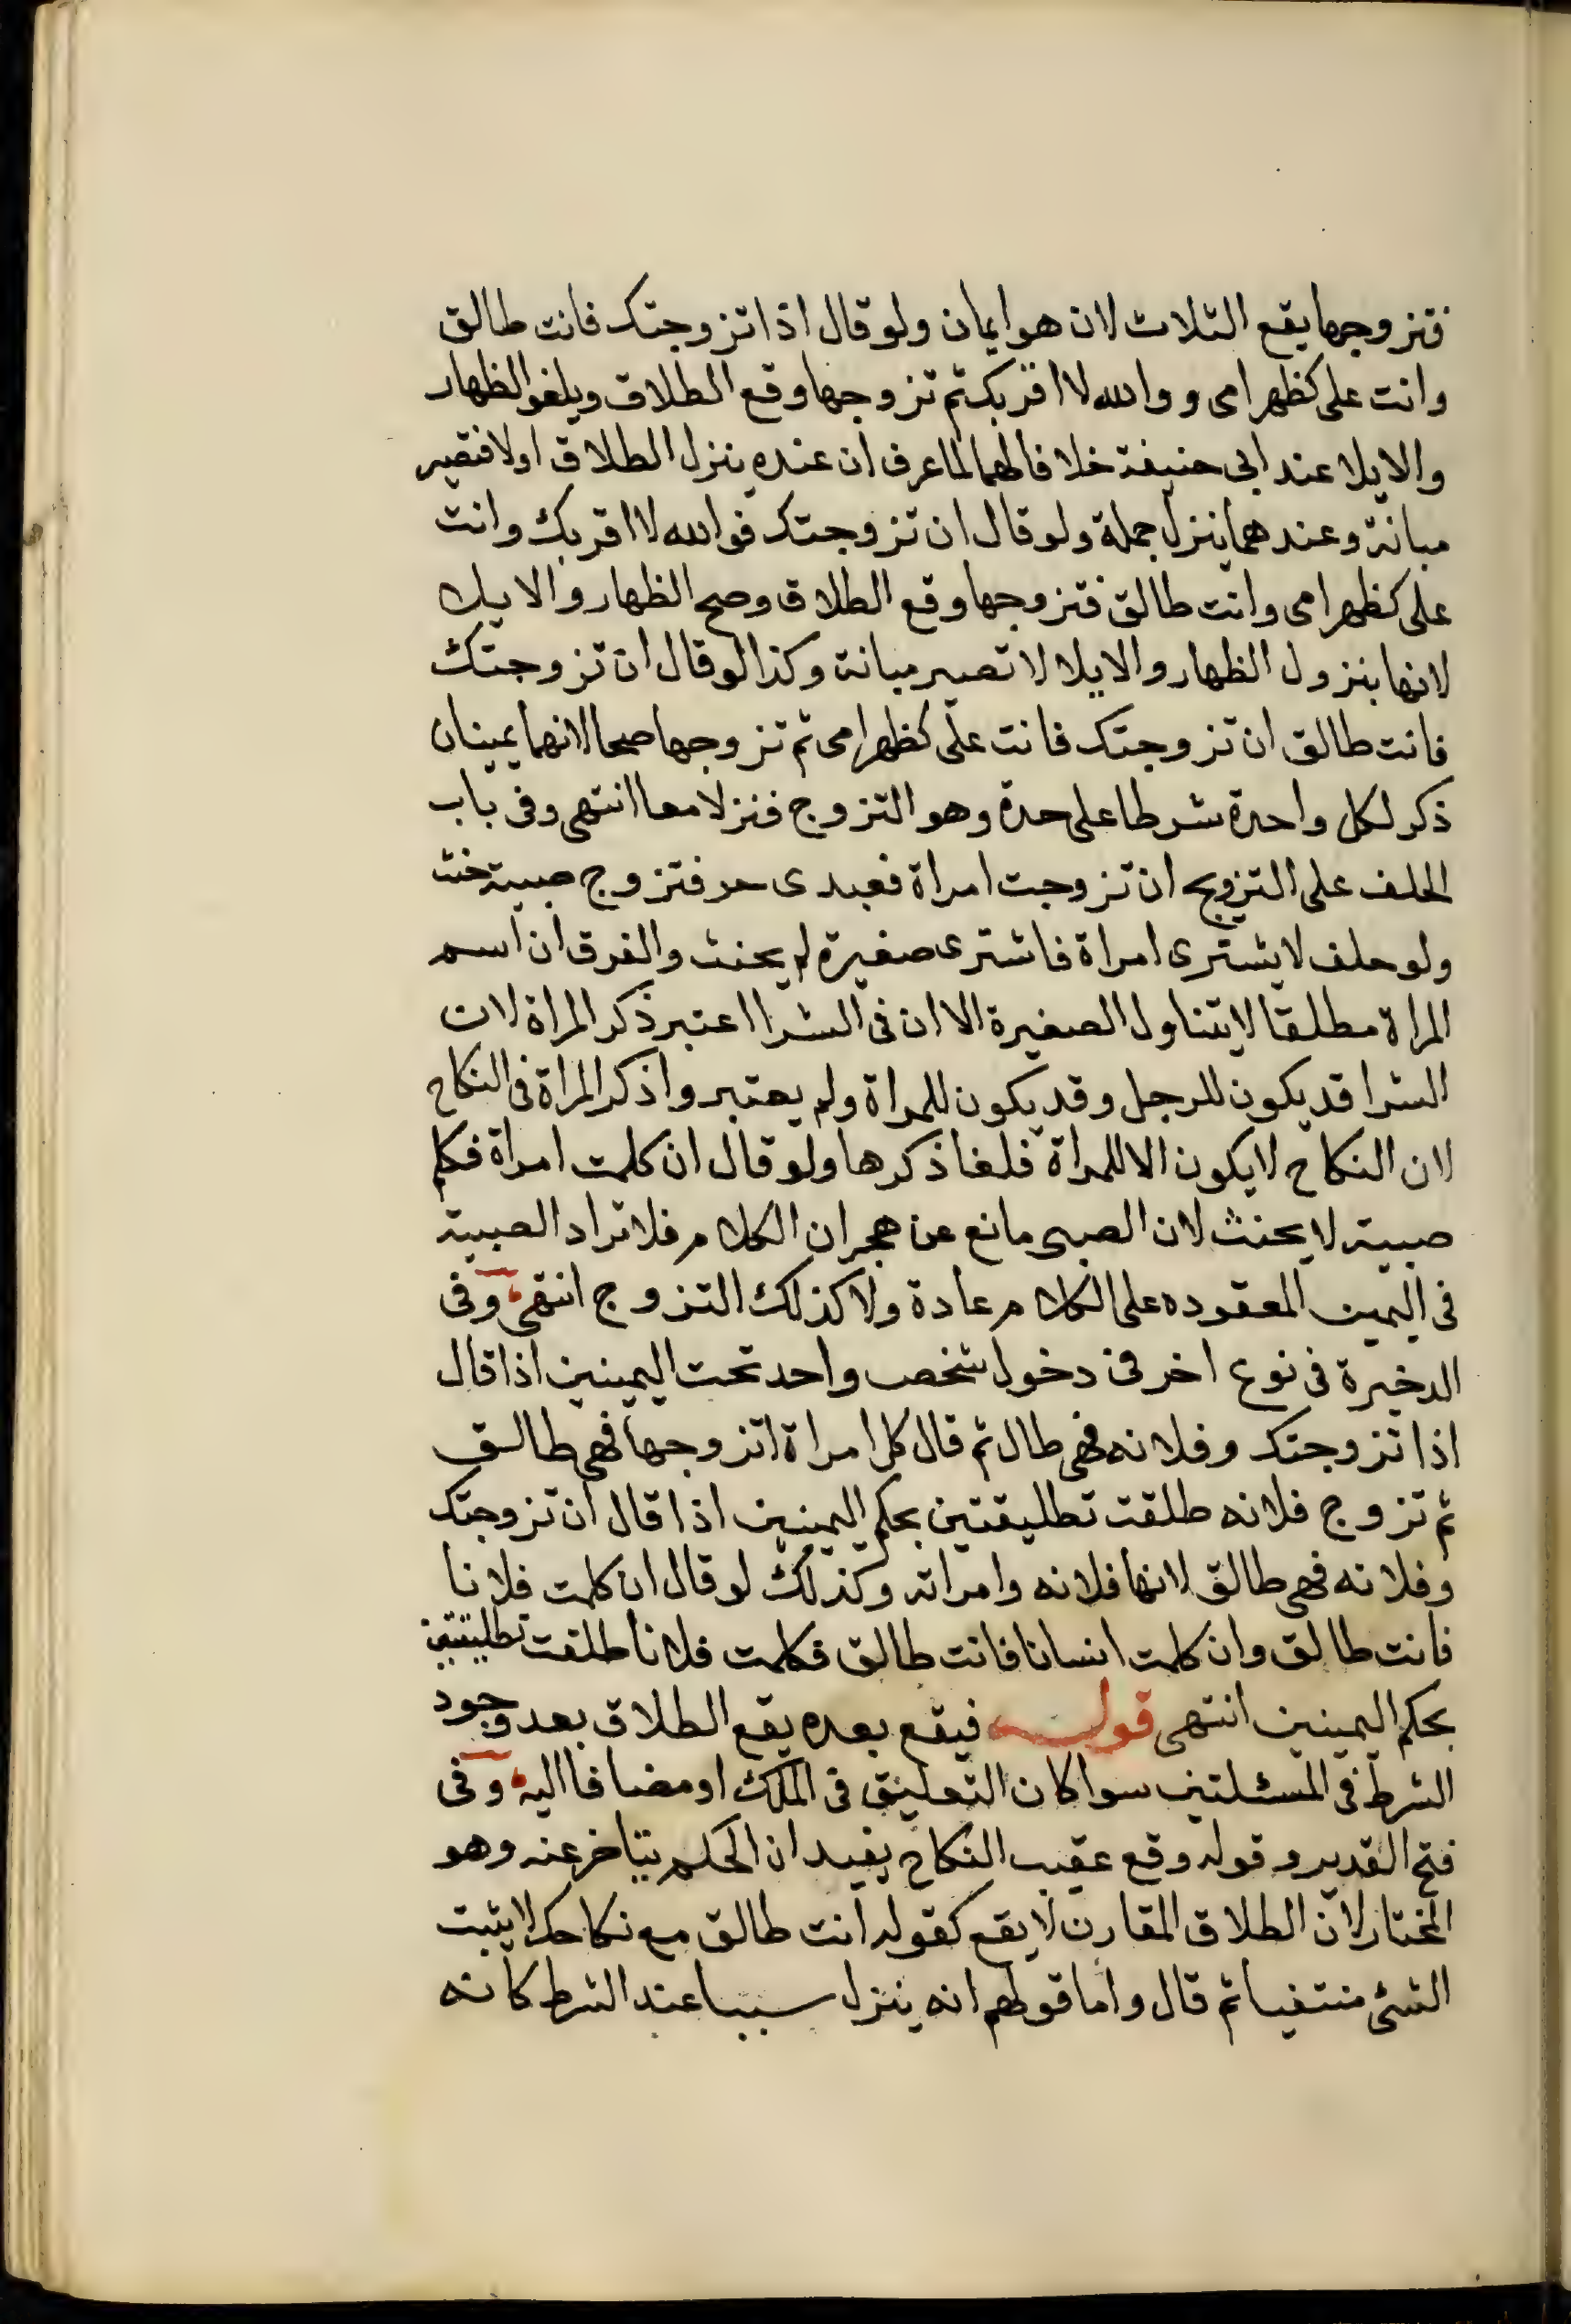 فتزوجها يقع الثلاث لان هو ايمان ولو قال اذا تزوجتك فانت طالق
وانت على كظهر امى و والله لا اقربك ثم تزوجها وقع الطلاق ويلغو الظهار
والايلا عند ابى حنيفة خلافا لهما لما عرف ان عنده ينزل الطلاق اولا فتصير
مبانة وعندهما ينزل جملة ولو قال ان تزوجتك فوالله لا اقربك وانت
على كظهر امى وانت طالق فتزوجها وقع الطلاق وصح الظهار والايلا
لانها بنزول الظهار والايلا لا تصير مبانة وكذا لو قال ان تزوجتك
فانت طالق ان تزوجتك فانت على كظهر امى ثم تزوجها صحا لانهما يمينان
ذكر لكل واحدة شرطا على حدة وهو التزوج فنزلا معا انتهى وفى باب
الحلف على التزويج ان تزوجت امراة فعبدى حر فتزوج صبية حنث
ولو حلف لا يشترى امراة فاشترى صغيرة لم يحنث والفرق ان اسم
المراة مطلقا لا يتناول الصغيرة الا ان فى الشرا اعتبر ذكر المراة لان
الشرا قد يكون للرجل وقد يكون للمراة ولم يعتبروا ذكر المراة فى النكاح
لان النكاح لا يكون الا للمراة فلغا ذكرها ولو قال ان كلمت امراة فكلم
صبية لا يحنث لان الصبى مانع عن هجران الكلام فلا تراد الصبية
فى اليمين المعقوده على الكلام عادة ولا كذلك التزوج انتهى وفى
الدخيرة فى نوع اخر فى دخول شخص واحد تحت اليمينين اذا قال
اذا تزوجتك وفلانه فهى طال ثم قال كل امراة اتزوجها فهى طالق
ثم تزوج فلانه طلقت تطليقتين بحكم اليمينين اذا قال ان تزوجتك
وفلانه فهى طالق لانها فلانه وامراته وكذلك لو قال ان كلمت فلانا
فانت طالق وان كلمت انسانا فانت طالق فكلمت فلانا طلقت تطليقتين
بحكم اليمينين انتهى قوله فيقع بعده يقع الطلاق بعد وجود
الشرط فى المسئلتين سوا كان التعليق فى الملك او مضافا اليه وفى
فتح القدير و قوله وقع عقيب النكاح يفيد ان الحكم يتاخر عنه وهو
المختار لان الطلاق المقارن لا يقع كقوله انت طالق مع نكاحك لا يثبت
الشئ منتفيا ثم قال واما قولهم انه ينزل سببا عند الشرط كانه